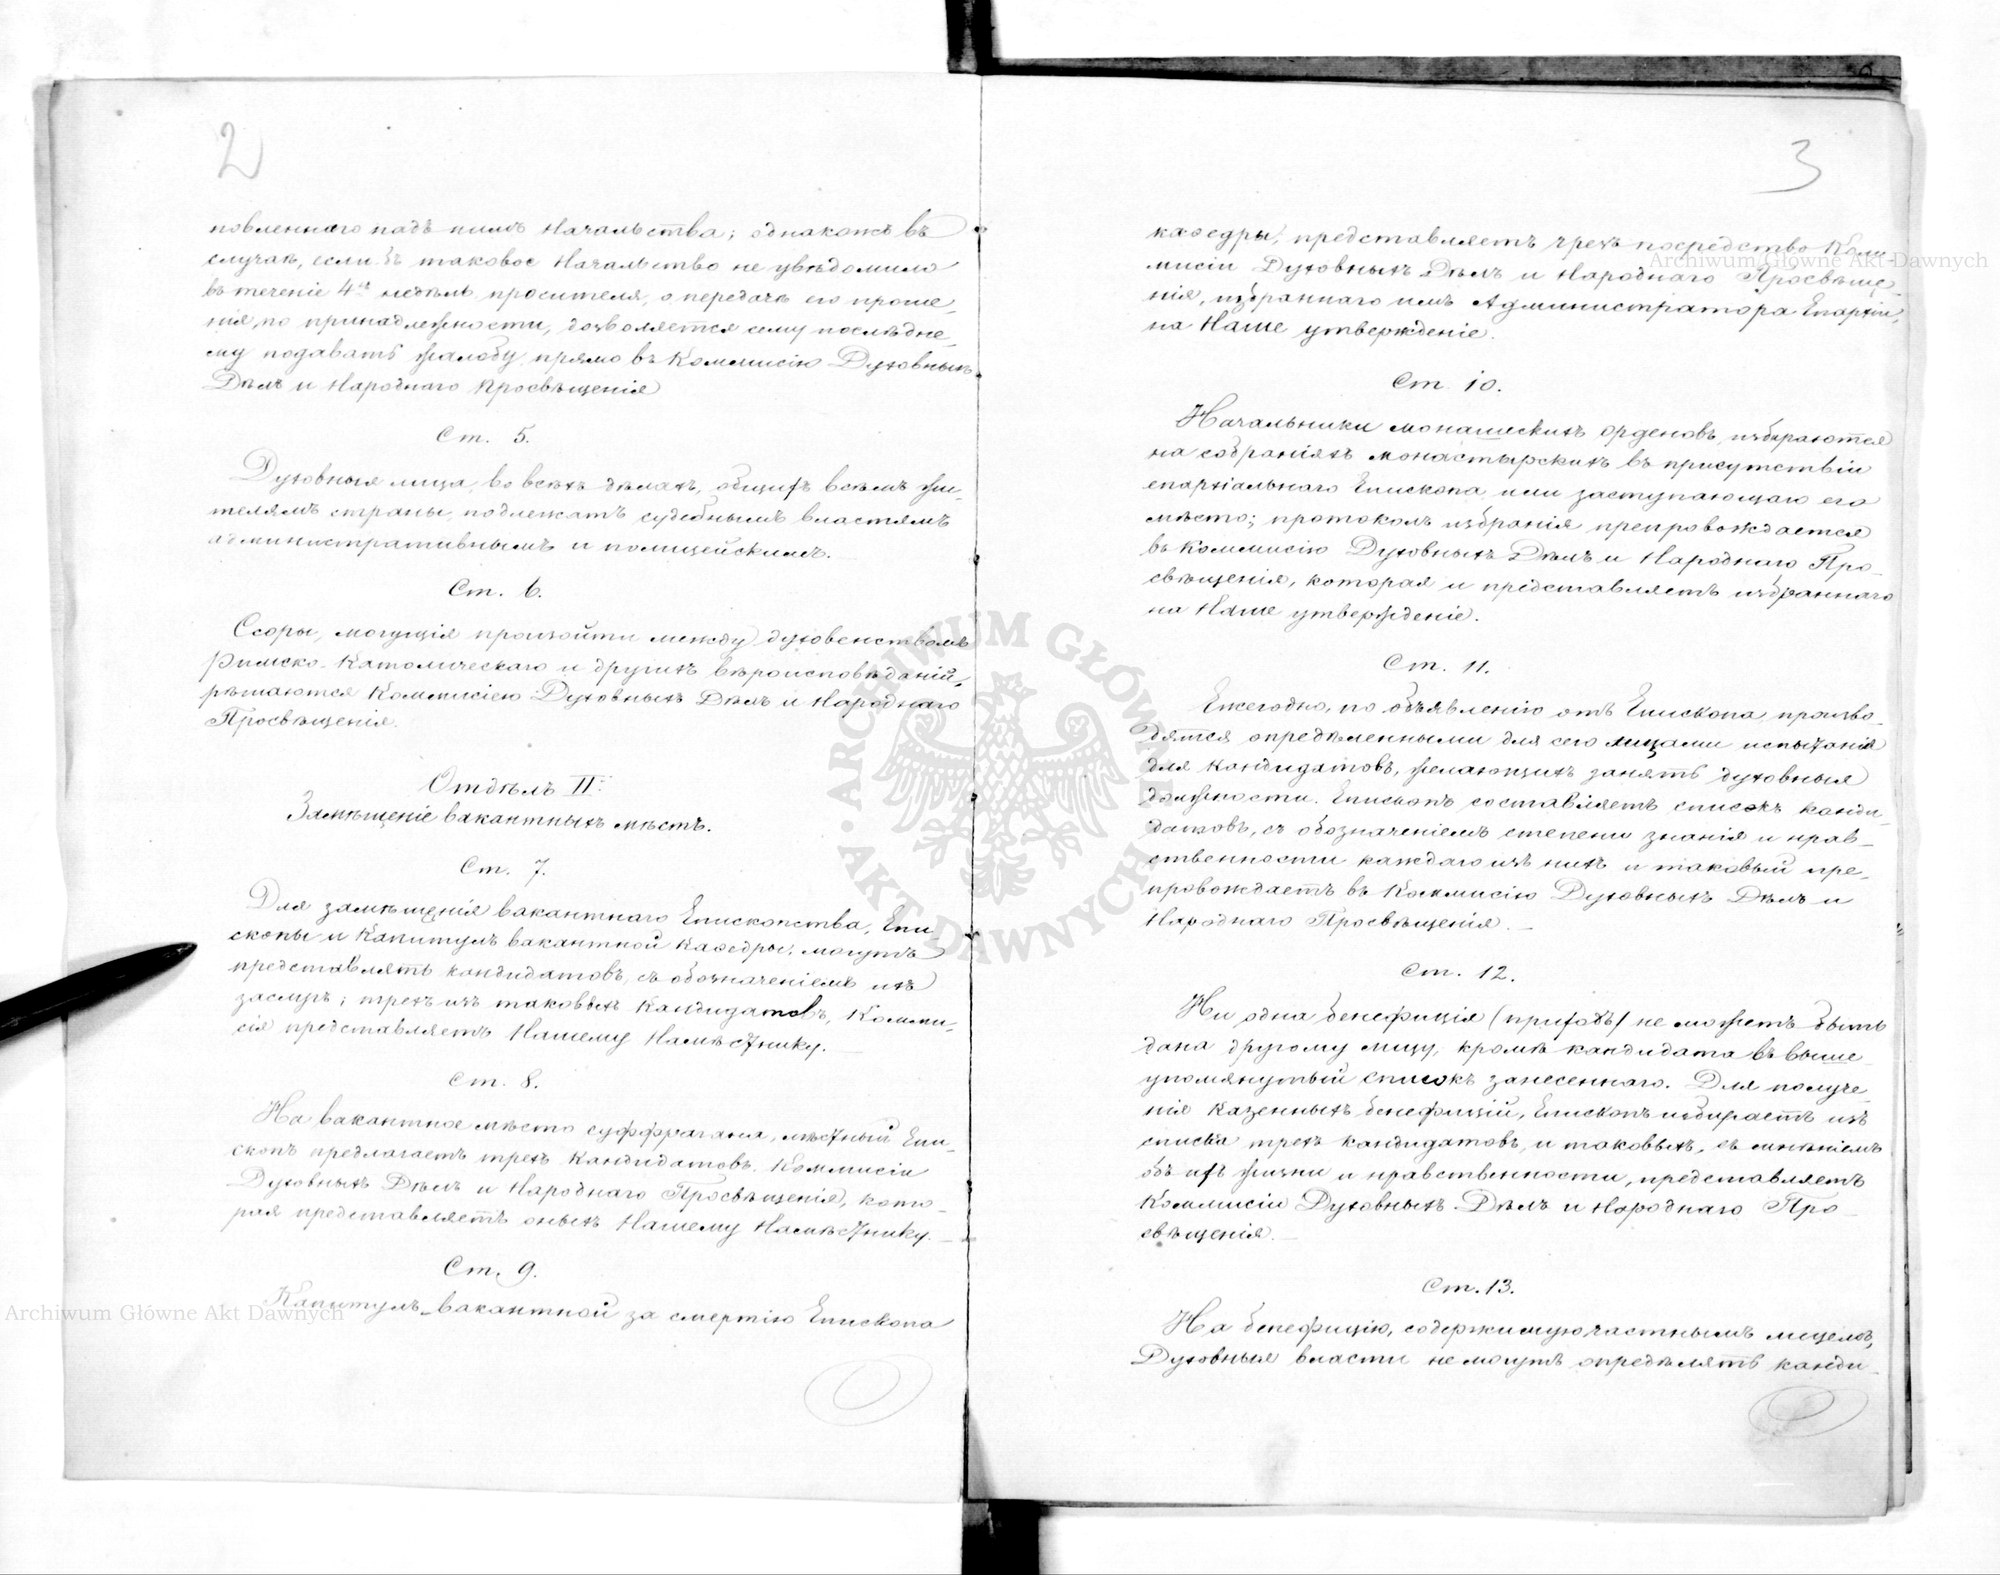 2
новленнаго надъ нимъ Начальства; однакожъ въ
случаѣ, если бъ таковое Начальство не увѣдомило
въ теченіе 4хъ недѣль просителя, о передачѣ его проше-
нія, по принадлежности, дозволяется сему послѣдне-
му подавать жалобу прямо въ Коммисію Духовныхъ
Дѣлъ и Народнаго Просвѣщенія
Ст. 5.
Духовныя лица, во всѣхъ дѣлахъ, общихъ всѣмъ жи-
телямъ страны, подлежатъ судебнымъ властямъ
административнымъ и полицейскимъ.
Ст. 6.
Ссоры, могущія произойти между духовенствомъ
Римско-Католическаго и другихъ вѣроисповѣданій,
рѣшаются Коммисіею Духовныхъ Дѣлъ и Народнаго
Просвѣщенія.
Отдѣлъ II:
Замѣщеніе вакантныхъ мѣстъ.
Ст. 7.
Для замѣщенія вакантнаго Епископства, Епи
скопы и Капитулъ вакантной Каѳедры, могутъ
представлять кандидатовъ, съ обозначеніемъ ихъ
заслугъ; трехъ изъ таковыхъ Кандидатовъ, Комми-
сія представляетъ Нашему Намѣстнику.
Ст. 8.
На вакантное мѣсто суффрагана, мѣстный Епи-
скопъ предлагаетъ трехъ Кандидатовъ Коммисіи
Духовныхъ Дѣлъ и Народнаго Просвѣщенія, кото-
рая представляетъ оныхъ Нашему Намѣстнику.
Ст. 9.
Капитулъ вакантной за смертію Епископа
3
каѳедры, представляетъ чрезъ посредство Ком-
мисіи Духовныхъ Дѣлъ и Народнаго Просвѣще-
нія, избраннаго имъ Администратора Епархіи,
на Наше утвержденіе.
Ст. 10.
Начальники монашескихъ орденовъ, избираются
на собраніяхъ монастырскихъ въ присутствіи
епархіальнаго Епископа или заступающаго его
мѣсто; протоколъ избранія препровождается
въ Коммисію Духовныхъ Дѣлъ и Народнаго Про-
свѣщенія, которая и представляетъ избраннаго
на Наше утвержденіе.
Ст. 11.
Ежегодно, по объявленію отъ Епископа, произво-
дятся опредѣленными для сего лицами испытанія
для Кандидатовъ, желающихъ занять духовныя
должности. Епископъ составляетъ списокъ канди-
датовъ, съ обозначеніемъ степени знанія и нрав-
ственности каждаго изъ нихъ и таковый пре-
провождаетъ въ Коммисію Духовныхъ Дѣлъ и
Народнаго Просвѣщенія.
Ст. 12.
Ни одна бенефиція (приходъ) не можетъ быть
дана другому лицу, кромѣ кандидата въ выше-
упомянутый списокъ занесеннаго. Для получе-
нія казенныхъ бенефицій, Епископъ избираетъ изъ
списка трехъ кандидатовъ, и таковыхъ, съ мнѣніемъ
объ ихъ жизни и нравственности, представляетъ
Коммисіи Духовныхъ Дѣлъ и Народнаго Про-
свѣщенія.
Ст. 13.
На бенефицію, содержимую частнымъ лицемъ,
Духовныя власти не могутъ опредѣлять канди-
ARCHIWUM GŁÓWNE AKT DAWNYCH
Archiwum Główne Akt Dawnych
Archiwum Główne Akt Dawnych